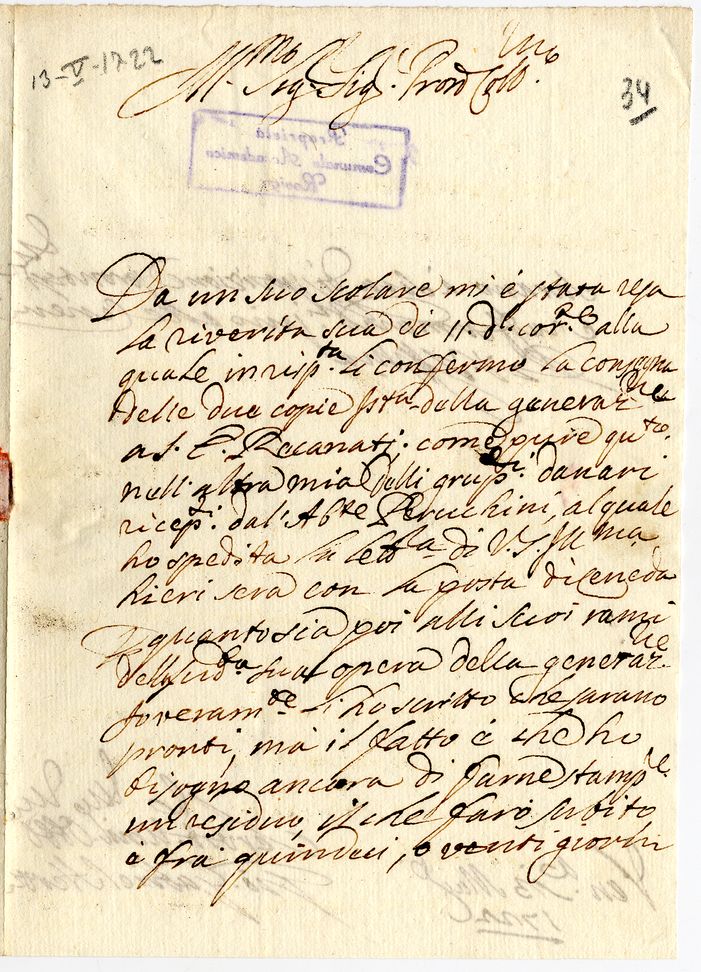 13-V-1722
34
Proprietà
Comunale Accademica
Rovigo
Da un suo scolare mi è stata resa
la riverita sua di 11. d. cor.te alla
quale in risp.ta li confermo la consegna
delle due copie Ist.a della generaz.ne
a S. E. Recanati; come pure qu.to
nell'altra mia delli danari
dal Ab.te Peruchini, al quale
ho spedita la lett.ra di V. S. Ill.ma
hieri sera con la posta di Ceneda
quanto sia poi alli suoi rami
sua opera della generaz.ne
Io veram.te li ho scritto che sarano
pronti, ma il fatto è che ho
bisogno ancora di farne stamp.re
un residuo, il che farò subito
e fra quindeci, o venti giorni
Ven. 13 Mag.
1722